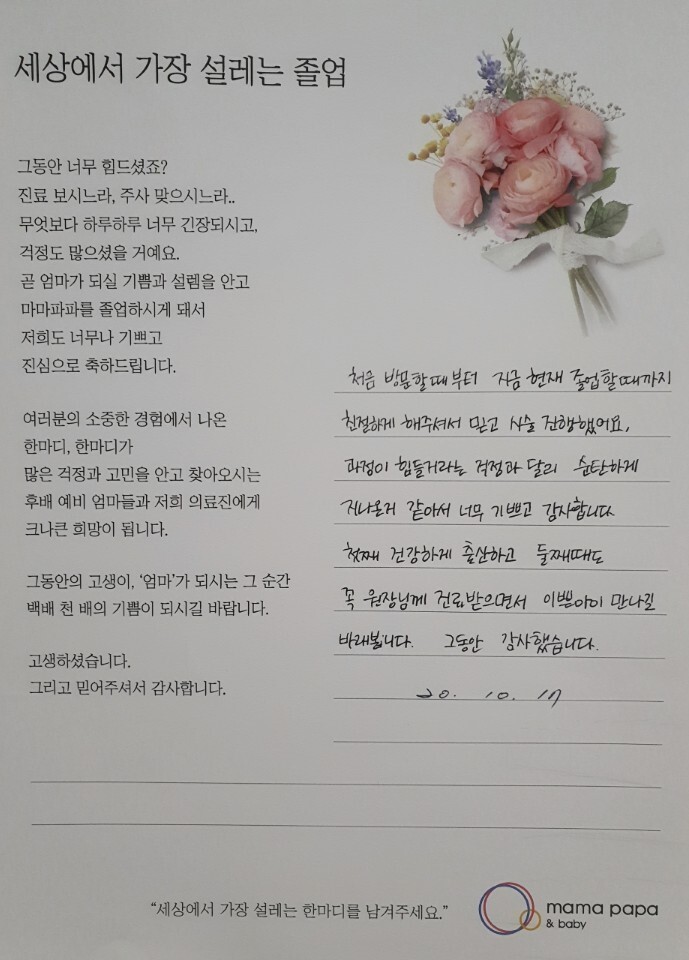 세상에서 가장 설레는 졸업
그동안 너무 힘드셨죠?
진료 보시느라, 주사 맞으시느라..
무엇보다 하루하루 너무 긴장되시고,
걱정도 많으셨을 거예요.
곧 엄마가 되실 기쁨과 설렘을 안고
마마파파를 졸업하시게 돼서
저희도 너무나 기쁘고
진심으로 축하드립니다.
여러분의 소중한 경험에서 나온
한마디, 한마디가
많은 걱정과 고민을 안고 찾아오시는
후배 예비 엄마들과 저희 의료진에게
크나큰 희망이 됩니다.
그동안의 고생이, '엄마'가 되시는 그 순간
백배 천 배의 기쁨이 되시길 바랍니다.
고생하셨습니다.
그리고 믿어주셔서 감사합니다.
처음 방문할때부터 지금 현재 졸업할때까지
친절하게 해주셔서 믿고 시술 진행했어요.
과정이 힘들거라는 걱정과 달리 순탄하게
지나온거 같아서 너무 기쁘고 감사합니다
첫째 건강하게 출산하고 둘째때도
꼭 원장님께 진료받으면서 이쁜아이 만나길
바래봅니다. 그동안 감사했습니다.
20. 10. 17
"세상에서 가장 설레는 한마디를 남겨주세요."
mama papa
& baby